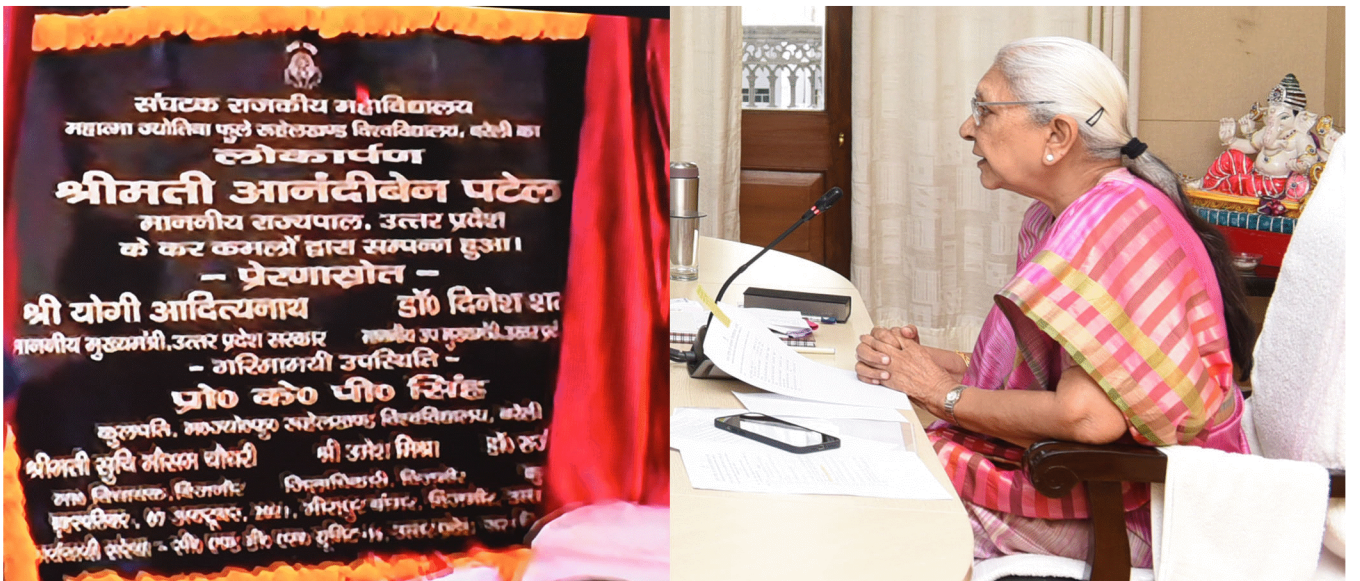 संघटक राजकीय महाविद्यालय
महात्मा ज्योतिबा फुले रूहेलखण्ड विश्वविद्यालय, बरेली का
लोकार्पण
श्रीमती आनंदीबेन पटेल
माननीय राज्यपाल, उत्तर प्रदेश
के कर कमलों द्वारा सम्पन्न हुआ।
– प्रेरणास्रोत –
श्री योगी आदित्यनाथ डॉ० दिनेश
माननीय मुख्यमंत्री, उत्तर प्रदेश सरकार माननीय उप मुख्यमंत्री, उत्तर
– गरिमामयी उपस्थिति –
प्रो० के० पी० सिंह
कुलपति, रूहेलखण्ड विश्वविद्यालय, बरेली
श्रीमती सुचि मौसम चौधरी श्री उमेश मिश्रा डॉ०
मा० विधायक, बिजनौर जिलाधिकारी, बिजनौर